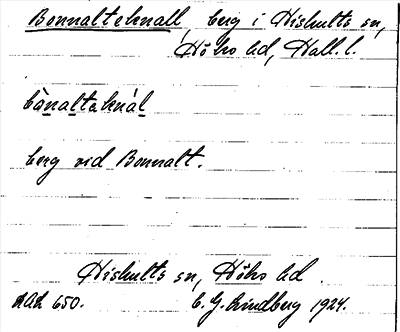 Bonnalteknall, berg i Hishults sn,
Höks hd, Hall. l.
bànaltəknál
berg vid Bonnalt.
Hishults sn, Höks hd
650. C. G. Lindberg 1924.